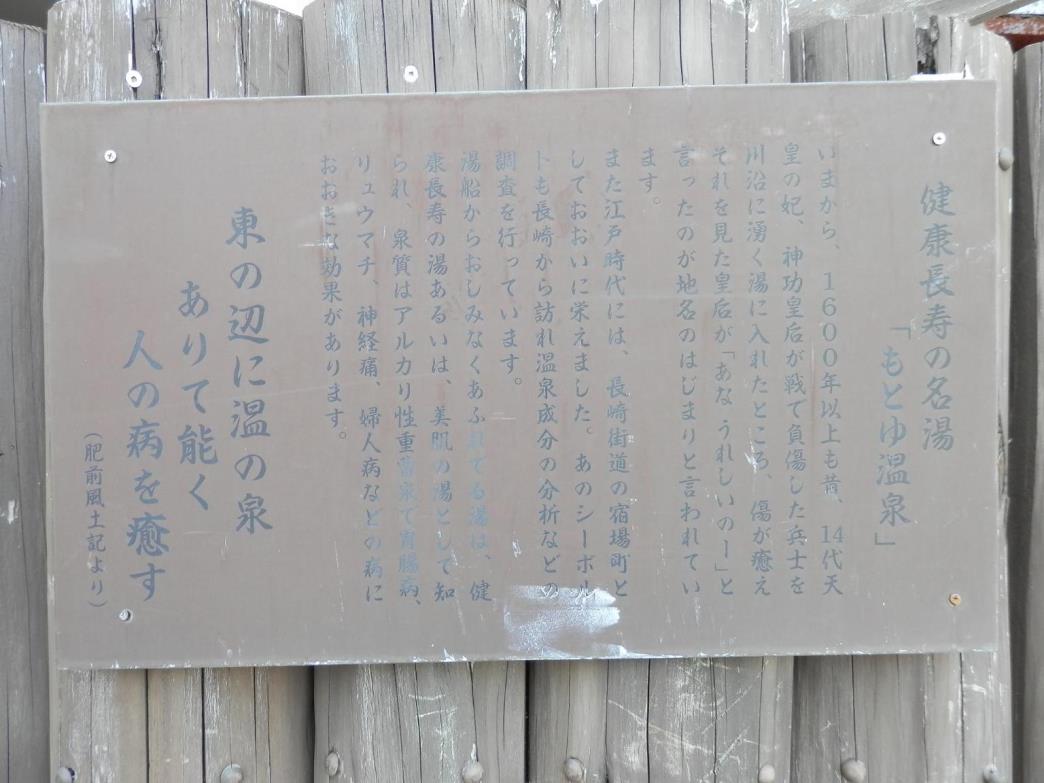 健康長寿の名湯
「もとゆ温泉」
いまから、1600年以上も昔、14代天
皇の妃、神功皇后が戦で負傷した兵士を
川沿に湧く湯に入れたところ、傷が癒え
それを見た皇后が「あなうれしいのー」と
言ったのが地名のはじまりと言われてい
ます。
また江戸時代には、長崎街道の宿場町と
しておおいに栄えました。あのシーボル
トも長崎から訪れ温泉成分の分析などの
調査を行っています。
湯船からおしみなくあふれでる湯は、健
康長寿の湯あるいは、美肌の湯として知
られ、泉質はアルカリ性重曹泉で胃腸病、
リュウマチ、神経痛、婦人病などの病に
おおきな効果があります。
東の辺に温の泉
ありて能く
人の病を癒す
（肥前風土記より）